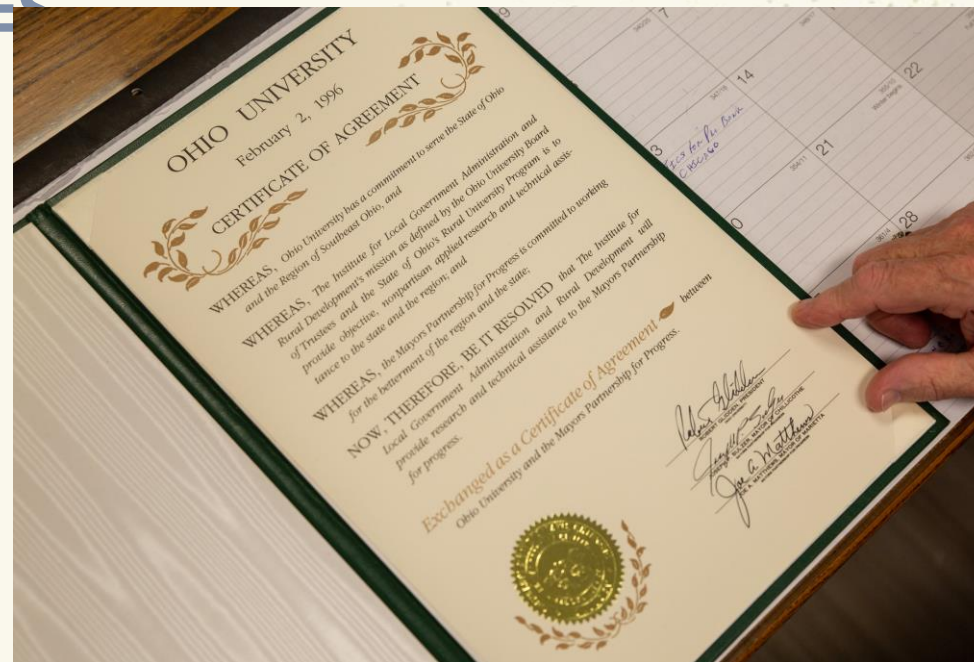 OHIO UNIVERSITY
February 2, 1996
CERTIFICATE OF AGREEMENT
WHEREAS, Ohio University has a commitment to serve the State of Ohio
and the Region of Southeast Ohio, and
WHEREAS, The Institute for Local Government Administration and
Rural Development's mission as defined by the Ohio University Board
of Trustees and the State of Ohio's Rural University Program is to
provide objective, nonpartisan applied research and technical assis-
tance to the state and the region; and
WHEREAS, the Mayors Partnership for Progress is committed to working
for the betterment of the region and the state;
NOW, THEREFORE, BE IT RESOLVED that The Institute for
Local Government Administration and Rural Development will
provide research and technical assistance to the Mayors Partnership
for progress.
Exchanged as a Certificate of Agreement between
Ohio University and the Mayors Partnership for Progress.
ROBERT GLIDDEN, PRESIDENT
JOSEPH P. SULZER, MAYOR OF CHILLICOTHE
Joe A. Matthews
JOE A. MATTHEWS, MAYOR OF MARIETTA
7
14
21
22
28
Winter begins
CHICAGO